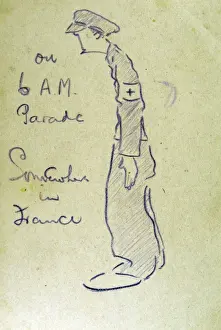 on
6 A.M.
Parade
Somewhere
in
France